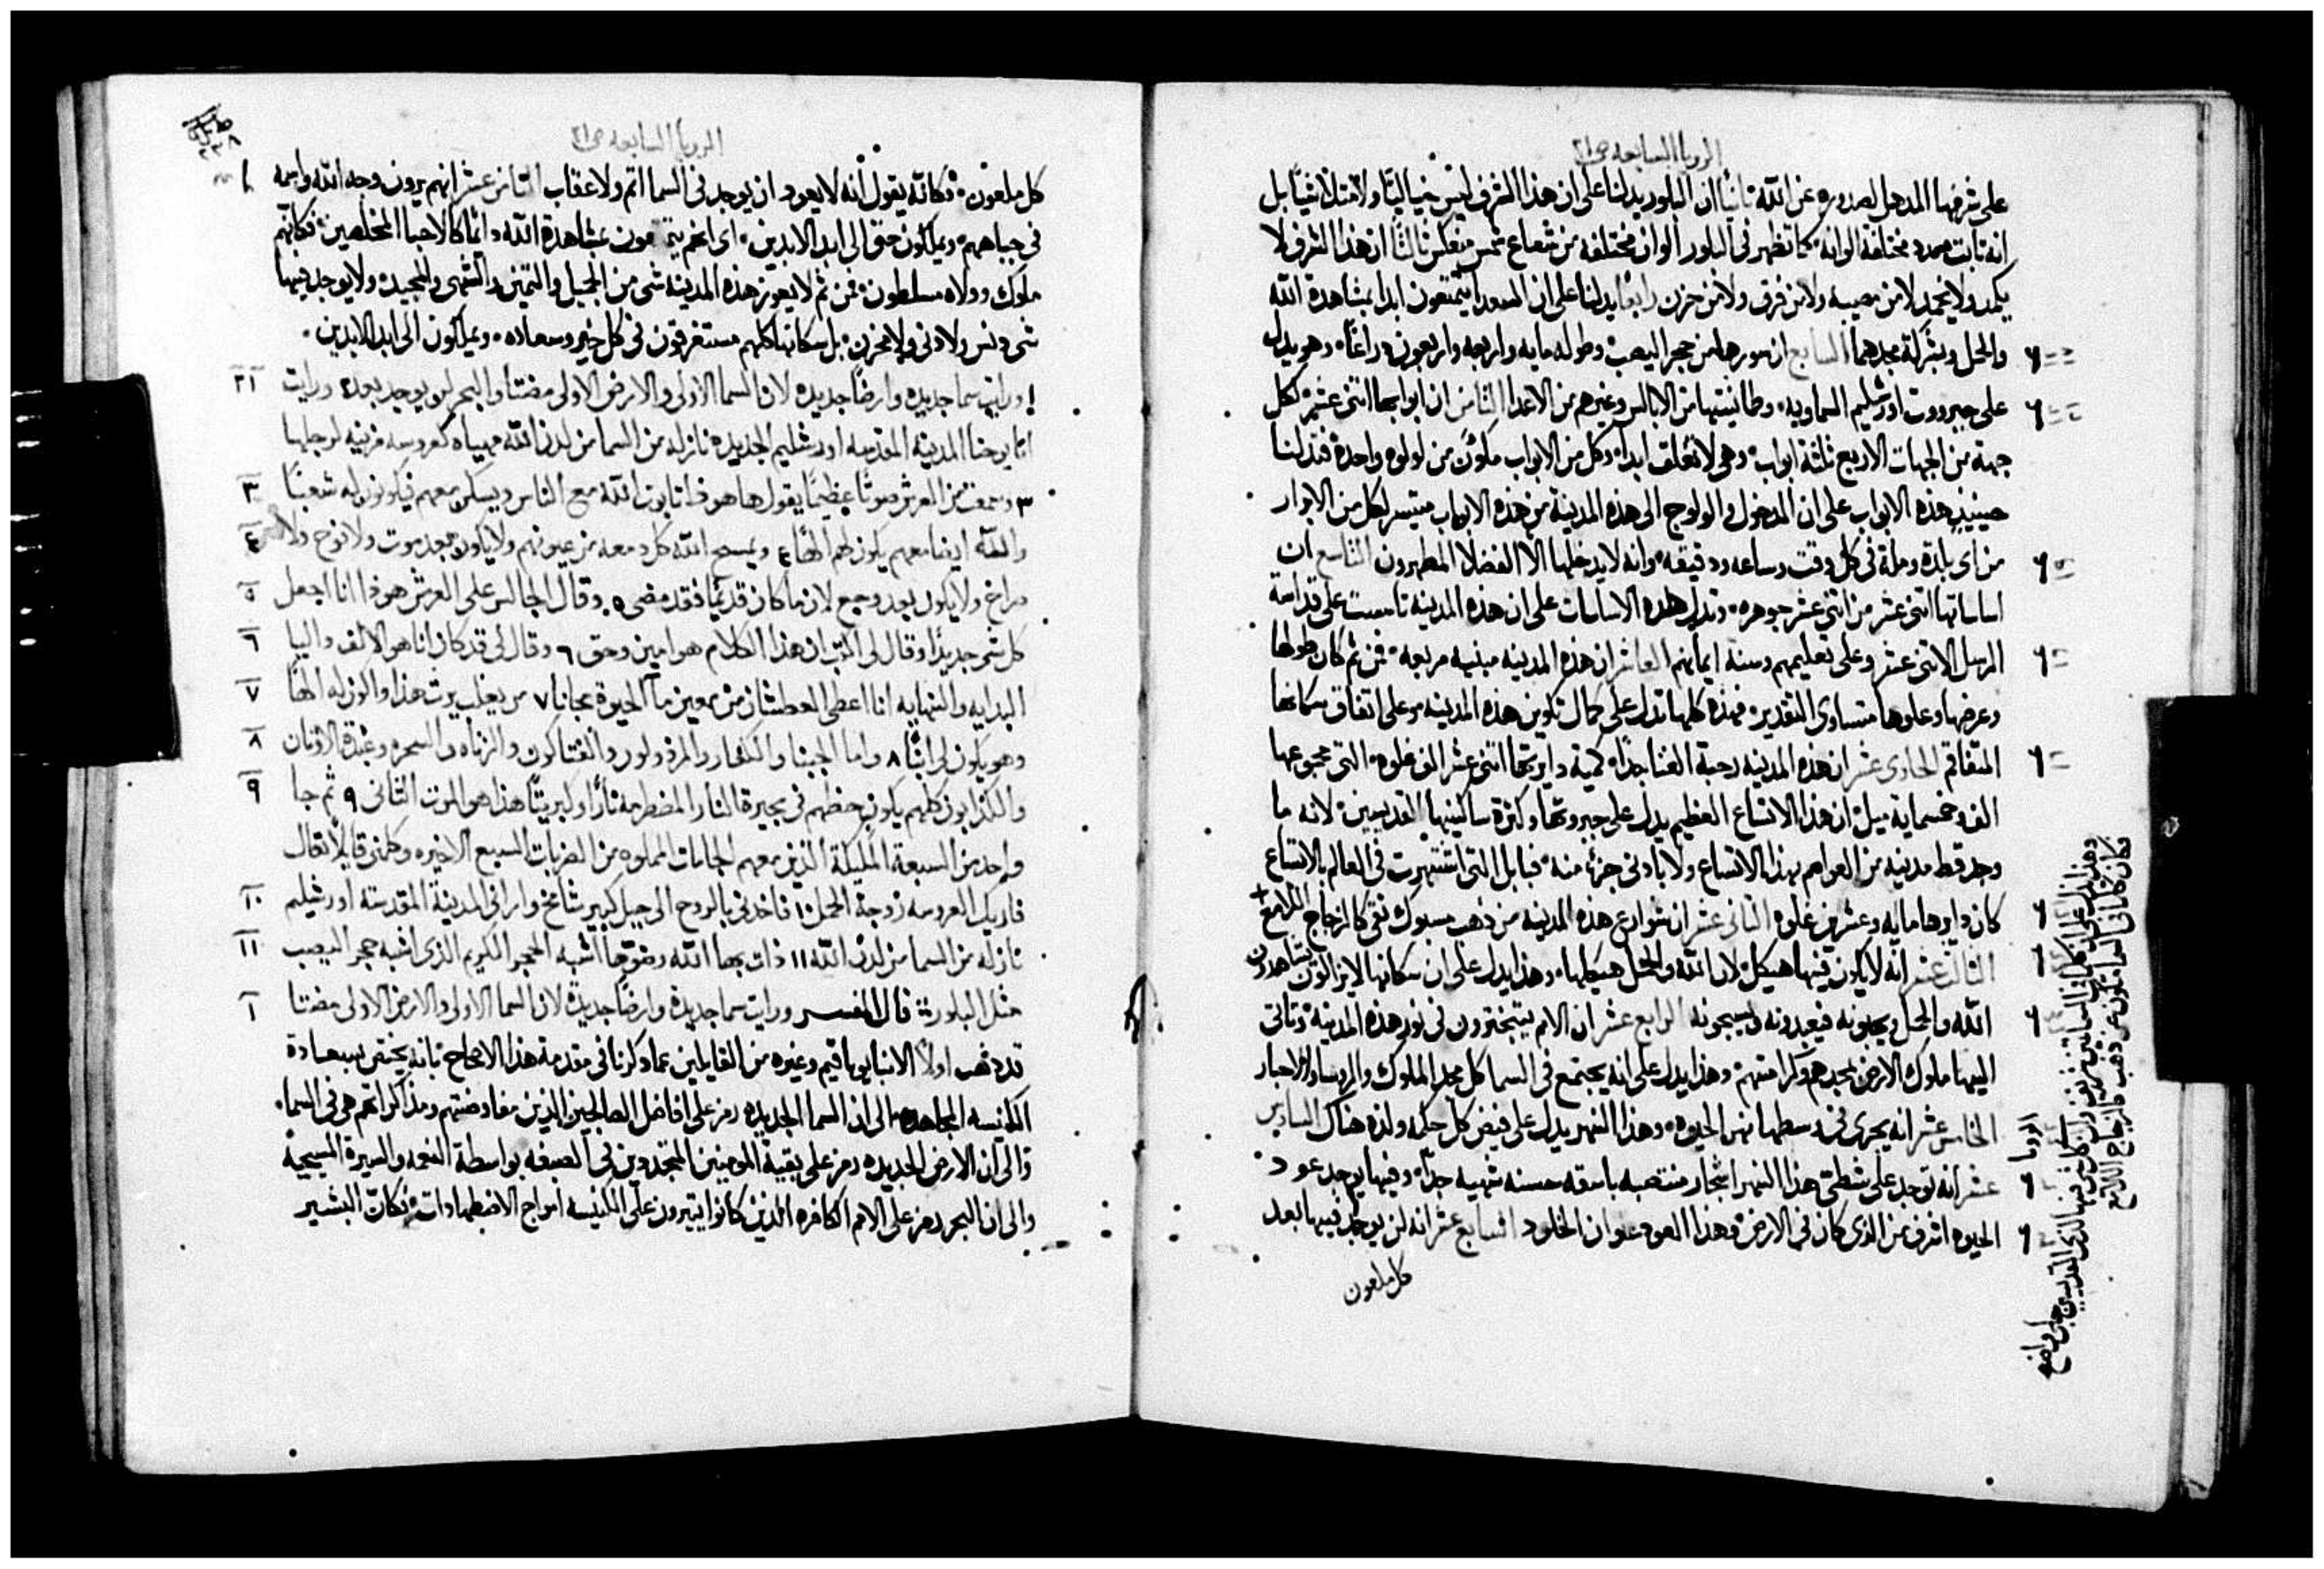 الرويا السابعه ص٢١
على شرفها المدهل لصدوره عن الله ثانيًا ان البلور يدلنا على ان هذا الشرف ليس خياليًا ولا مثلاشيًا بل
انه ثابت ممدد مختلفة الوانه كما تظهر فى البلور الوان مختلفه من شعاع شمس منعكس ثالثًا ان هذا الشرف لا
يكمد ولا يخمد لا من مصيبه ولا من فرق ولا من حزن رابعًا يدلنا على ان السعدا يتمتعون ابدا بمشاهدة الله
والحمل وبشركة مجدهما السابع ان سورها من حجر اليصب وطوله مايه واربعه واربعون دراعًا وهو يدل
على جبرووت اورشليم السماويه وطمانينتها من الابالس وغيرهم من الاعدا الثامن ان ابوابها اثنى عشر لكل
جهة من الجهات الاربع ثلثة ابواب وهى لا تغلق ابدا وكل من الابواب مكون من لولوه واحدة فتدلنا
حينيذٍ هذه الابواب على ان الدخول والولوج الى هذه المدينة من هذه الابواب متيسر لكل من الابرار
من اى بلدة وملة فى كل وقت وساعه ودقيقه وانه لا يدخلها الا الفضلا المطهرون التاسع ان
اساساتها اثنى عشر من اثنى عشر جوهره وتدل هذه الاساسات على ان هذه المدينه تاسست على قداسة
الرسل الاثنى عشر وعلى تعليمهم وسنة ايمانهم العاشر ان هذه المدينه مبنيه مربعه فمن ثم كان طولها
وعرضها وعلوها متساوى التقدير فهذه كلها تدل على كمال تكوين هذه المدينه وعلى اتفاق سكانها
المتفاقم الحادى عشر ان هذه المدينه رحبة الفنا جدًا كمية دايرتها اثنى عشر الف غلوه التى مجموعها
الف وخمسماية ميل ان هذا الاتساع العظيم يدل على جبروتها وكثرة ساكنيها القديسين لانه ما
وجد قط مدينه من العواصم بهذا الاتساع ولا بادنى جزء منه فبابل التى اشتهرت فى العالم بالاتساع
كان دايرها مايه وعشرين غلوه الثانى عشر ان شوارع هذه المدينه من ذهب مسبوك نقى كالزجاج اللامع
الثالث عشر انه لا يكون فيها هيكل لان الله والحمل هيكلها وهذا يدل على ان سكانها لا يزالون يشاهدون
الله والحمل ويحبونه فيعبدونه ويسبحونه الرابع عشر ان الامم يتبخترون فى نور هذه المدينة وتاتى
اليها ملوك الارض بمجدهم وكرامتهم وهذا يدل على انه يجتمع فى السما كل مجد الملوك والروسا والاحبار
الخامس عشر انه يجرى فى وسطها نهر الحيوه وهذا النهر يدل على فيض كل حكمه ولذه هناك السادس
عشر انه توجد على شطى هذا النهر اشجار منتصبه باسقه حسنه شهيه جدًا وفيها يوجد عود
الحيوه اشرف من الذى كان فى الارض وهذا العود عنوان الخلود السابع عشر انه لن يوجد فيها بعد
كل ملعون
الرويا السابعه ص٢١
كل ملعون فكانه يقول انه لا يعود ان يوجد فى السما اثم ولا عقاب الثامن عشر انهم يرون وجه الله واسمه
فى جباههم ويملكون حتى الى ابد الابدين اى انهم يتمتعون بمشاهدة الله دايمًا كالاحبا المخلصين فكانهم
ملوك وولاه مسلطون فمن ثم لا يعوز هذه المدينه شى من الجميل والثمين والشهى والمجيد ولا يوجد فيها
شى دنس ولا دنى ولا محزن بل سكانها كلهم مستغرقون فى كل خير وسعاده ويملكون الى ابد الابدين
ا ورايت سما جديده وارضًا جديده لان السما الاولى والارض الاولى مضتا والبحر لن يوجد بعده ورايت ٢١
انا يوحنا المدينه المقدسه اورشليم الجديده نازله من السما من لدن الله مهياه كعروسه مزينه لرجلها
٣ وسمعت من العرش صوتًا عظيمًا يقول ها هوذا تابوت الله مع الناس ويسكن معهم فيكونون له شعبًا ٣
والله ايضا معهم يكون لهم الهًا ٤ ويمسح الله كل دمعه من عيونهم ولا يكون بعد موت ولا نوح ولا ٤
صراخ ولا يكون بعد وجع لان ما كان قديمًا فقد مضى ٥ وقال الجالس على العرش هوذا انا اجعل ٥
كل شى جديدًا وقال لى اكتب ان هذا الكلام هو امين وحق ٦ وقال لى قد كان انا هو الالف واليا ٦
البدايه والنهايه انا اعطى العطشان من معين ما الحيوة مجانا ٧ من يغلب يرث هذا واكون له الهًا ٧
وهو يكون لى ابنًا ٨ واما الجبنا والكفار والمرذولون والقتالون والزناه والسحره وعبدة الاوثان ٨
والكذابون كلهم يكون حظهم فى بحيرة النار المضطرمه نارًا وكبريتًا هذا هو الموت الثانى ٩ ثم جا ٩
واحد من السبعة المليكة الذين معهم الجامات المملوه من الضربات السبع الاخيره وكلمنى قايلًا تعال
فاريك العروسه زوجة الحمل ١٠ فاخذنى بالروح الى جبل كبير شامخ وارانى المدينة المقدسة اورشليم ١٠
نازله من السما من لدن الله ١١ ذات بها الله وضوها اشبه الحجر الكريم الذى اشبه حجر اليصب ١١
مثل البلور قال المفسر ورايت سما جديدة وارضًا جديدة لان السما الاولى والارض الاولى مضتا ١
قد ذهب اولًا الانبا يواقيم وغيره من القايلين عما ذكرنا فى مقدمة هذا الاصحاح بانه يختص بسعادة
الكنيسه المجاهده الى ان السما الجديده رمز على افاضل الصالحين الذين مفاوضتهم ومذاكراتهم هى فى السما
والى ان الارض الجديده رمز على بقية المومنين المتجددين فى الصبغه بواسطة النعمه والسيرة المسيحية
والى ان البحر رمز على الامم الكافره الذين كانوا يثيرون على الكنيسه امواج الاضطهادات فكان البشير